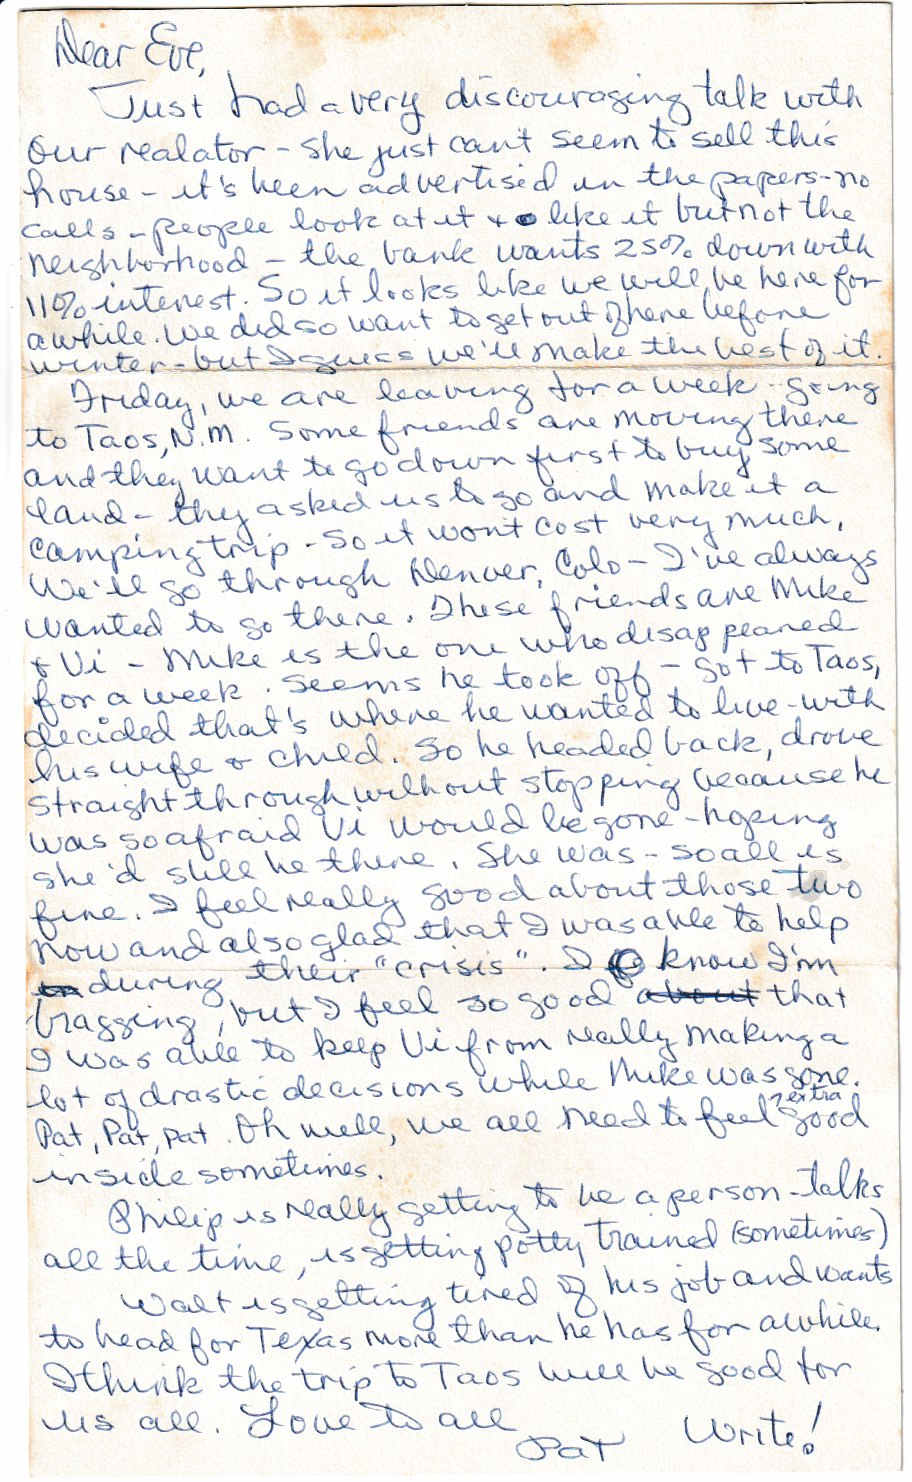 Dear Eve,
Just had a very discouraging talk with
our realator - she just can't seem to sell this
house - it's been advertised in the papers - no
calls - people look at it & like it but not the
neighborhood - the bank wants 25% down with
11% interest. So it looks like we will be here for
awhile. We did so want to get out of here before
winter - but I guess we'll make the best of it.
Friday, we are leaving for a week - going
to Taos, N.M. Some friends are moving there
and they want to go down first to buy some
land - they asked us to go and make it a
camping trip - So it won't cost very much,
We'll go through Denver, Colo - I've always
wanted to go there. These friends are Mike
& Vi - Mike is the one who disappeared
for a week. Seems he took off - got to Taos,
decided that's where he wanted to live - with
his wife & child. So he headed back, drove
straight through without stopping because he
was so afraid Vi would be gone - hoping
she'd still be there. She was - so all is
fine. I feel really good about those two
now and also glad that I was able to help
during their "crisis". I know I'm
bragging, but I feel so good about that
I was able to keep Vi from really making a
lot of drastic decisions while Mike was gone.
Pat, Pat, pat. Oh well, we all need to feel extra good
inside sometimes.
Philip is really getting to be a person - talks
all the time, is getting potty trained (sometimes)
Walt is getting tired of his job and wants
to head for Texas more than he has for awhile.
I think the trip to Taos will be good for
us all. Love to all
Pat Write!